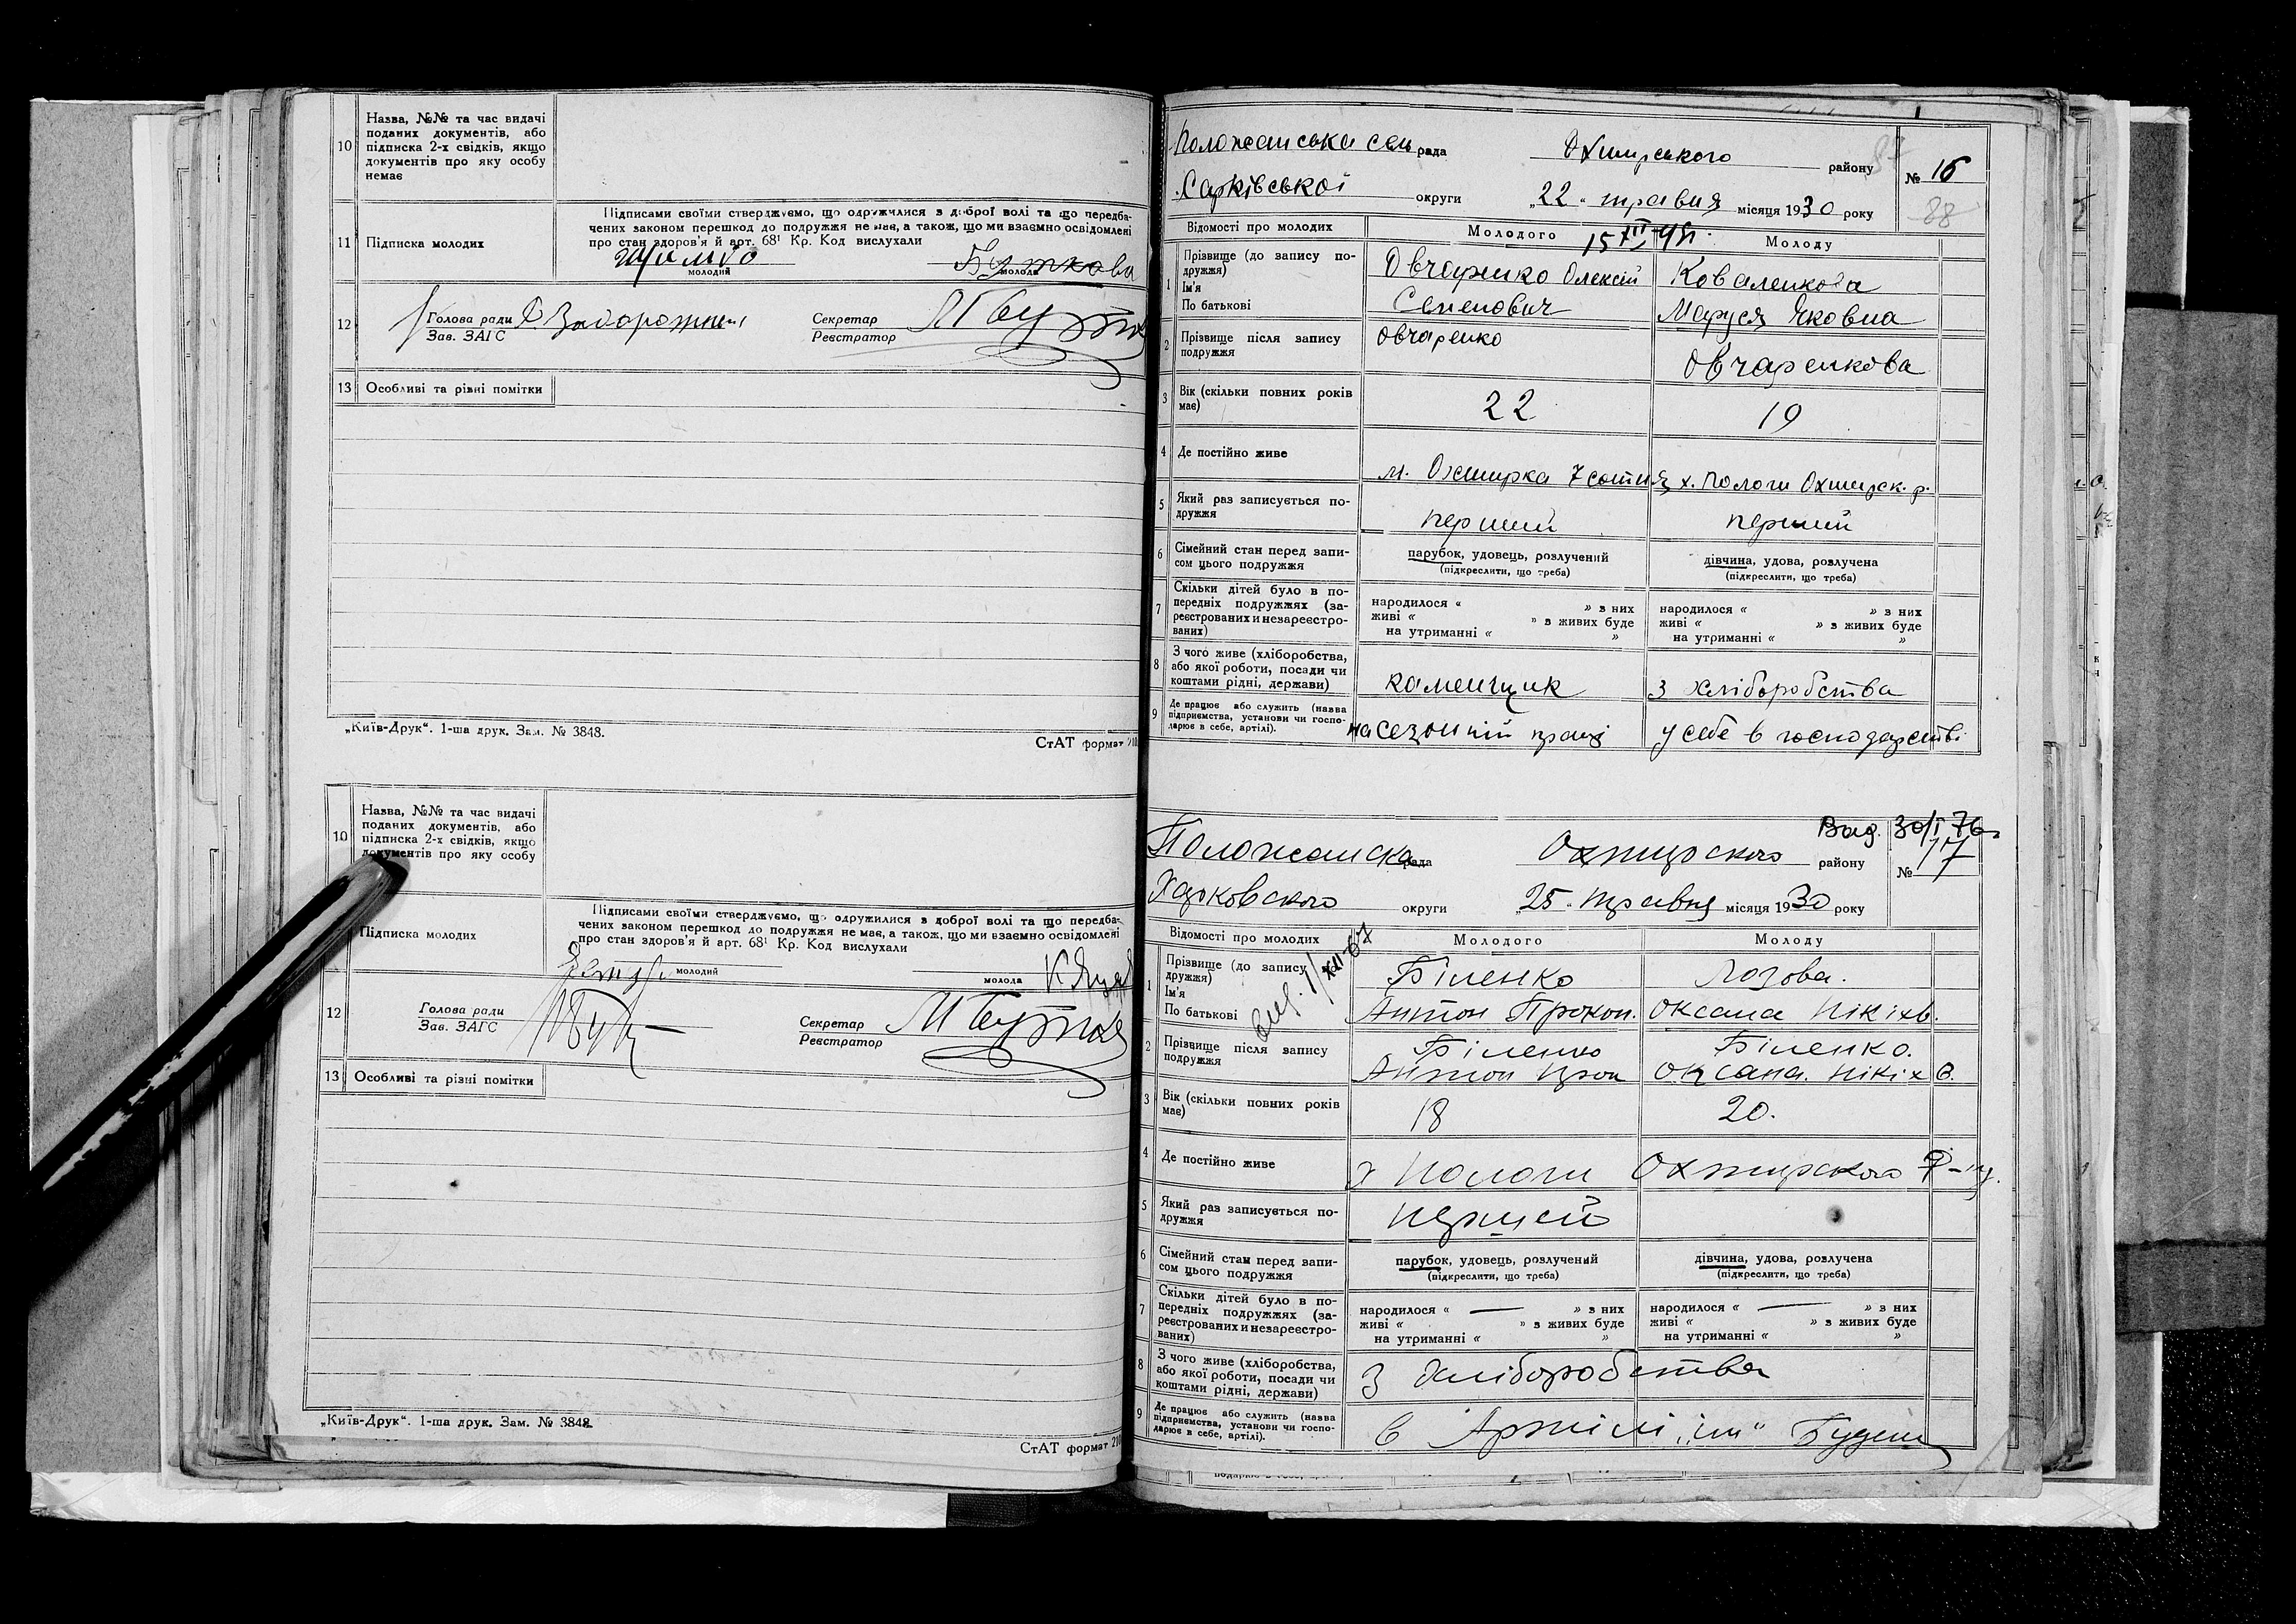 10 Назва, №№ та час видачі
поданих документів, або
підписка 2-х свідків, якщо
документів про яку особу
немає
Підписами своїми стверджуємо, що одружилися з доброї волі та що передба-
чених законом перешкод до подружжя не має, а також, що ми взаємно освідомлені
про стан здоров'я й арт. 68¹ Кр. Код вислухали
11 Підписка молодих
молодий молода
12 Голова ради Секретар
Зав. ЗАГС Реєстратор
13 Особливі та різні помітки
„Київ-Друк“. 1-ша друк. Зам. № 3848.
СтАТ формат 210
10 Назва, №№ та час видачі
поданих документів, або
підписка 2-х свідків, якщо
документів про яку особу
Підписами своїми стверджуємо, що одружилися з доброї волі та що передба-
чених законом перешкод до подружжя не має, а також, що ми взаємно освідомлені
про стан здоров'я й арт. 68¹ Кр. Код вислухали
Підписка молодих
молодий молода
12 Голова ради Секретар
Зав. ЗАГС Реєстратор
13 Особливі та різні помітки
„Київ-Друк“. 1-ша друк. Зам. № 3848.
СтАТ формат 210
Положанська сель рада Охтирського району № 16
Харківської округи „22“ травня місяця 1930 року
88
Відомості про молодих Молодого Молоду
1 Прізвище (до запису по-
дружжя)
Ім'я
По батькові
Овчаренко Олексій
Семенович
Коваленкова
Маруся Яковна
2 Прізвище після запису
подружжя
Овчаренко Овчаренкова
3 Вік (скільки повних років
має)
22 19
4 Де постійно живе м. Охтирка 7 сотня х. Пологи Охтирск. р.
5 Який раз записується по-
дружжя
перший перший
6 Сімейний стан перед запи-
сом цього подружжя
парубок, удовець, розлучений дівчина, удова, розлучена
(підкреслити, що треба) (підкреслити, що треба)
7 Скільки дітей було в по-
передніх подружжях (за-
реєстрованих и незареєстро-
ваних)
народилося « » з них народилося « » з них
живі « » з живих буде живі « » з живих буде
на утриманні « » на утриманні « »
8 З чого живе (хліборобства,
або якої роботи, посади чи
коштами рідні, держави)
каменщик з хліборобства
9 Де працює або служить (назва
підприємства, установи чи госпо-
дарює в себе, артілі).
на сезонній праці у себе в господарстві
Вид. 30/I 76
Положанска рада Охтирского району № 17
Харковского округи „25“ травня місяця 1930 року
Відомості про молодих Молодого Молоду
1 Прізвище (до запису
дружжя)
Ім'я
По батькові
Біленко Лозова.
Антон Прокоп. Оксана Нікіхв.
2 Прізвище після запису
подружжя
Біленко Біленко.
Антон Прок Оксана. Нікіхв.
3 Вік (скільки повних років
має)
18 20.
4 Де постійно живе х Пологи Охтирского Р-ну.
5 Який раз записується по-
дружжя
6 Сімейний стан перед запи-
сом цього подружжя
парубок, удовець, розлучений дівчина, удова, розлучена
(підкреслити, що треба) (підкреслити, що треба)
7 Скільки дітей було в по-
передніх подружжях (за-
реєстрованих и незареєстро-
ваних)
народилося « — » з них народилося « — » з них
живі « » з живих буде живі « » з живих буде
на утриманні « » на утриманні « »
8 З чого живе (хліборобства,
або якої роботи, посади чи
коштами рідні, держави)
З хліборобства
9 Де працює або служить (назва
підприємства, установи чи госпо-
дарює в себе, артілі).
в Артілі „ім“